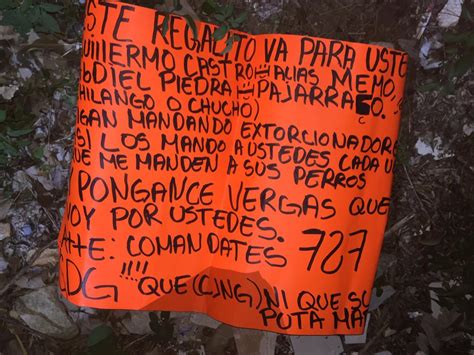 ESTE REGALITO VA PARA USTE
GUILLERMO CASTRO ALIAS MEMO.
ABDIEL PIEDRA PAJARRACO.
C
CHILANGO O CHUCHO)
SIGAN MANDANDO EXTORCIONADORE
ASI LOS MANDO A USTEDES CADA U
QUE ME MANDEN A SUS PERROS
Y PONGANCE VERGAS QUE
VOY POR USTEDES.
ATTE: COMANDATES 727
CDG !!!! QUE (CJNG) NI QUE SU
PUTA MA